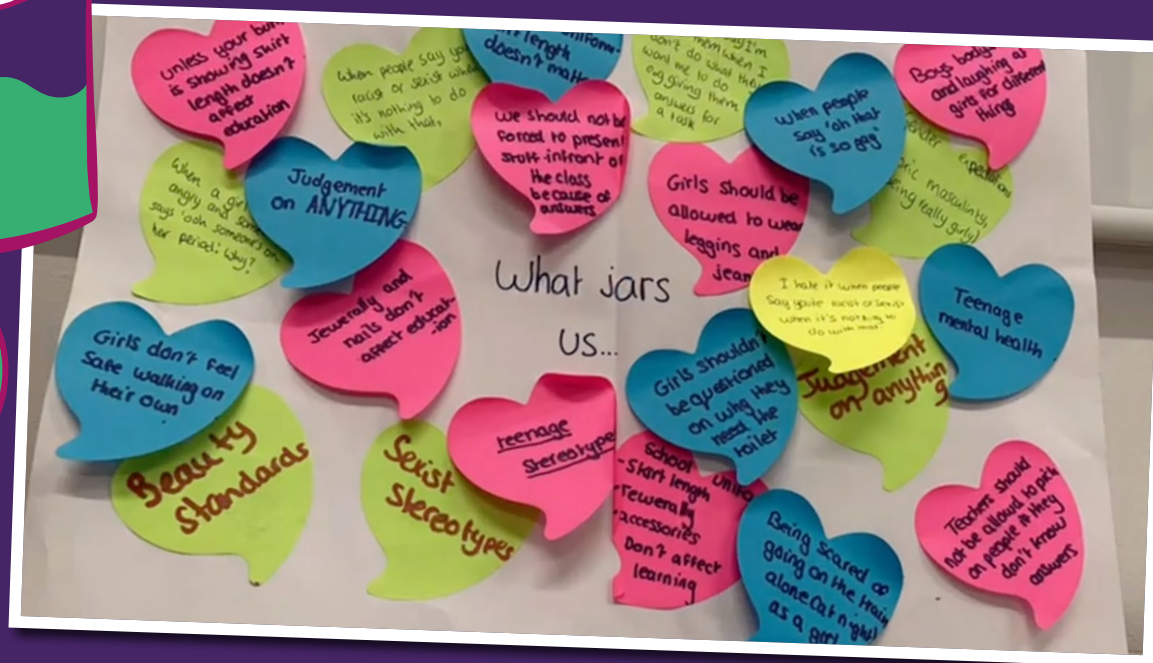 unless your bum
is showing skirt
length doesn't
affect
education
When people say you
racist or sexist when
it's nothing to do
with that,
length
doesn't matter
we should not be
forced to present
stuff infront of
the class
because of
answers
don't do what they
want me to do
eg giving them
answers for
a task
When people
say 'oh that
is so gay'
Boys body
and laughing at
girls for different
thing
gender expectations
masculinity,
being really girly)
When a girl
angry and some
says 'ooh someones on
her period.' Why?
Judgement
on ANYTHING
Girls should be
allowed to wear
leggins and
jean
What jars
us...
I hate it when people
Say you're racist or sexist
when it's nothing to
do with that.
Teenage
mental health
Jewerally and
nails don't
affect educat-
ion
Girls don't feel
Safe walking on
their own
Girls shouldn't
be questioned
on why they
need the
toilet
Judgement
on anythin
g
Beauty
standards
Sexist
Stereotypes
teenage
Stereotype
School unifo
-Skirt length
-Jewerally
-accessories
Don't affect
learning
Being scared of
going on the train
alone (at night)
as a girl
Teachers should
not be allowed to pick
on people if they
don't know
answers